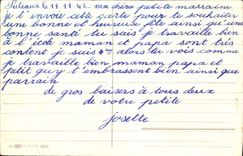 Puteaux 6.11.11.42. ma chère petite marraine
je t'envoie cette carte pour te souhaiter
une bonne et heureuse fête ainsi qu'une
bonne santé tu sais je travaille bien
à l'école maman et papa sont très
content je suis 4e alors tu vois comme
je travaille bien maman papa et
petit guy t'embrassent bien ainsi que
parrain
de gros baisers à tous deux
de votre petite
Josette